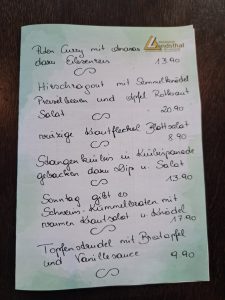 Landsthal
Puten Curry mit Ananas
dazu Eierreis
13.90
Hirschragout mit Semmelknödel
Preiselbeeren und Apfel Rotkraut
Salat
20.90
würzige Krautfleckerl Blattsalat
8.90
Stangen in Kürbispanade
gebacken dazu Dip u. Salat
13.90
Sonntag gibt es
Schweins-Kümmelbraten mit
warmen Krautsalat u. Knödel
17.90
Topfenstrudel mit Bratapfel
und Vanillesauce
9.90